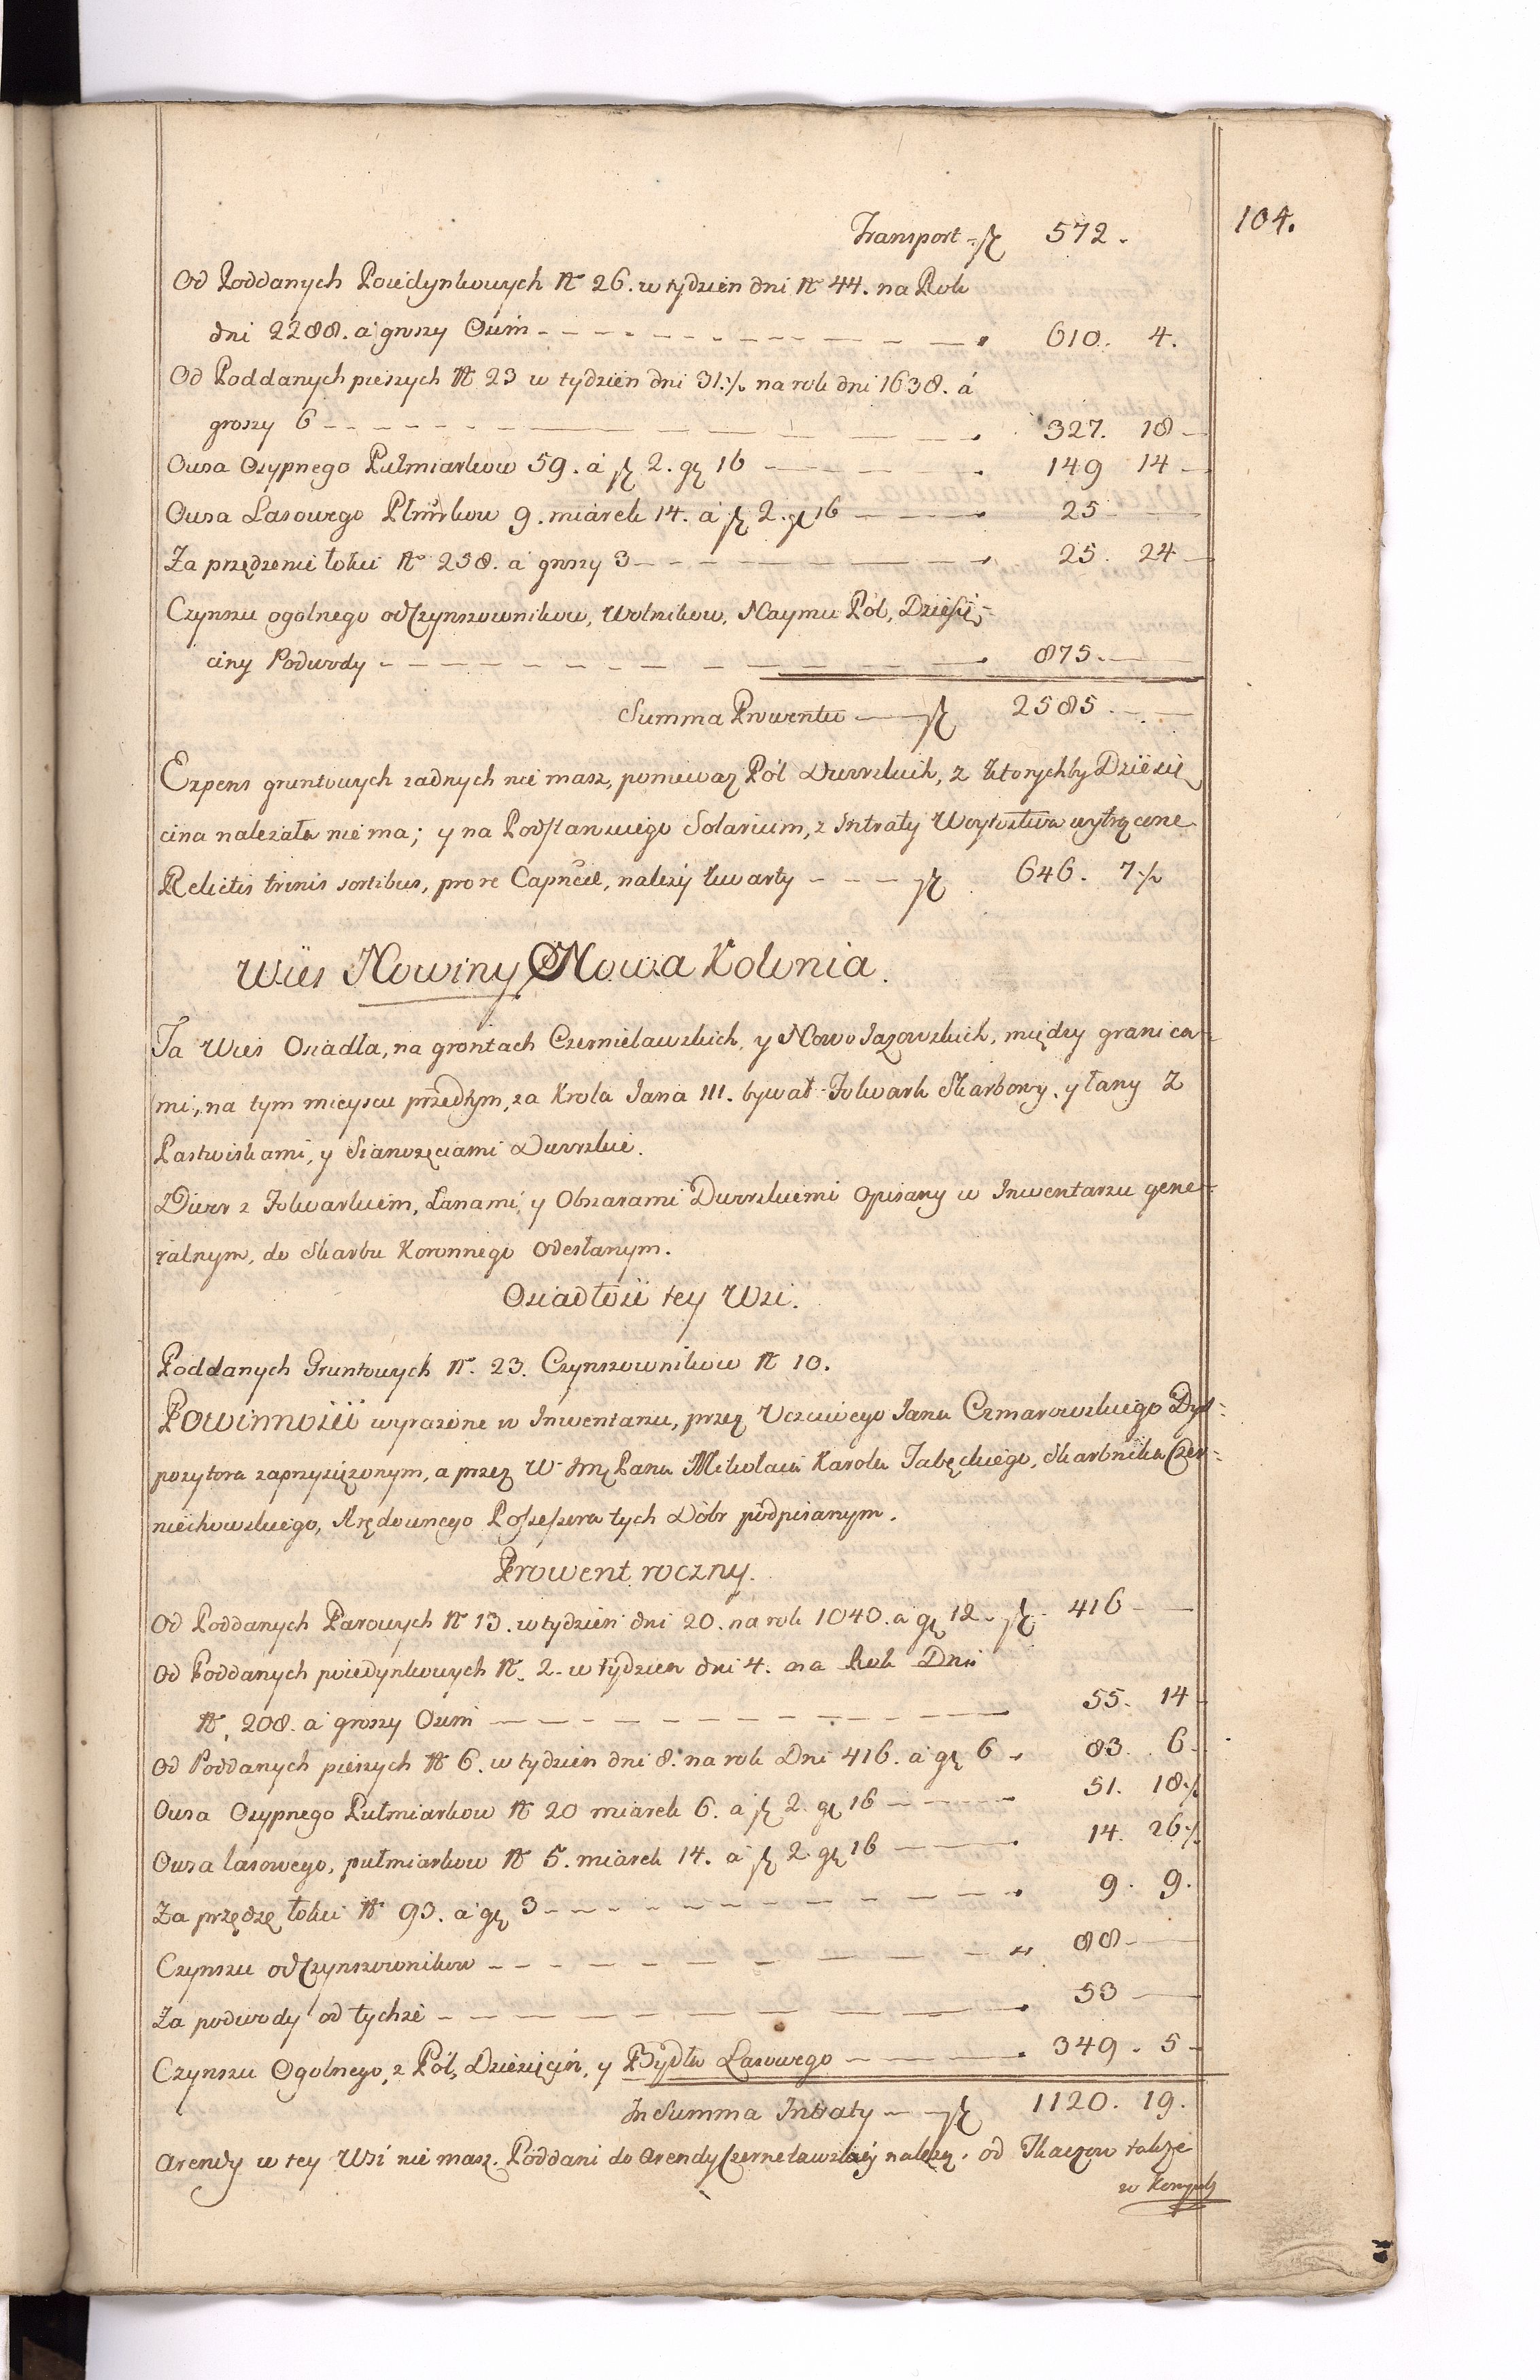 104.
Transport - fl 572.
Od Poddanych Poiedynkowych N° 26. w tydzień dni N° 44. na Rok
dni 2288. a groszy Osim - - - - - 610. 4.
Od Poddanych pieszych N° 23 w tydzień dni 31.½ na rok dni 1638. á
groszy 6 - - - - - 327. 18 -
Owsa Osypnego Pułmiarkow 59. á fl 2. gr 16 - - - - 149 14 -
Owsa Lasowego Płmrkow 9. miarek 14. á fl 2. gr 16 - - - 25 -
Za przędzenie łokci N° 258. a groszy 3 - - - - - 25. 24 -
Czynszu ogolnego od Czynszownikow, Wolnikow, Naymu Pól, Dziesię-
ciny Podwody - - - - - 875. -
Summa Prowentu - fl 2585. -
Expens gruntowych zadnych nie masz, poniewaz Pól Dworskich, z ktorychby Dziesię
cina nalezała nie ma; y na Podstarosciego Solarium, z Intraty Woytostwa wytrącone
Relictis trinis sortibus, pro re Capnda, nalezy kwarty - - - fl 646. 7½
Wies Nowiny Nowa Kolonia.
Ta Wies Osiadla, na grontach Czernielawskich, y Nowo Jazowskich, między granica-
mi, na tym mieyscu przedtym, za Krola Jana III. bywał Folwark Skarbowy, y łany z
Pastwiskami, y Sianozęciami Dworskie.
Dwor z Folwarkiem, Lanami, y Obszarami Dworskiemi opisany w Inwentarzu gene-
ralnym, do Skarbu Koronnego odesłanym.
Osiadłość tey Wsi.
Poddanych Gruntowych N°. 23. Czynszownikow N° 10.
Powinności wyrażone w Inwentarzu, przez Uczciwego Jana Czmarowskiego Dys-
pozytora zaprzysięzonym, a przez W Jmę Pana Mikolaia Karola Jabęckiego, Skarbnika Czer-
niechowskiego, Arędownego Possessora tych Dóbr podpisanym.
Prowent roczny.
Od Poddanych Parowych N° 13. w tydzień dni 20. na rok 1040. a gr 12. fl 416 -
Od Poddanych poiedynkowych N°. 2. w tydzien dni 4. na Rok Dni
N°. 208. a groszy Osim - - - - - 55. 14 -
Od Poddanych pieszych N° 6. w tydzien dni 8. na rok Dni 416. a gr 6 - 83. 6 -
Owsa Osypnego Pułmiarkow N° 20 miarek 6. a fl 2. gr 16 - - - 51. 18½
Owsa lasowego, pułmiarkow N° 5. miarek 14. a fl 2. gr 16 - - 14. 26½
Za przędzę łokci N° 93. a gr 3 - - - - - 9. 9.
Czynszu od Czynszownikow - - - - - 88 -
Za podwody od tychze - - - - - 53 -
Czynszu Ogolnego, z Pól, Dziesięcin, y Bydła Lasowego - - - 349. 5 -
In Summa Intraty - fl 1120. 19.
Arendy w tey Wsi nie masz. Poddani do Arendy Czernelawskiey nalezą. od Tkaczow takze